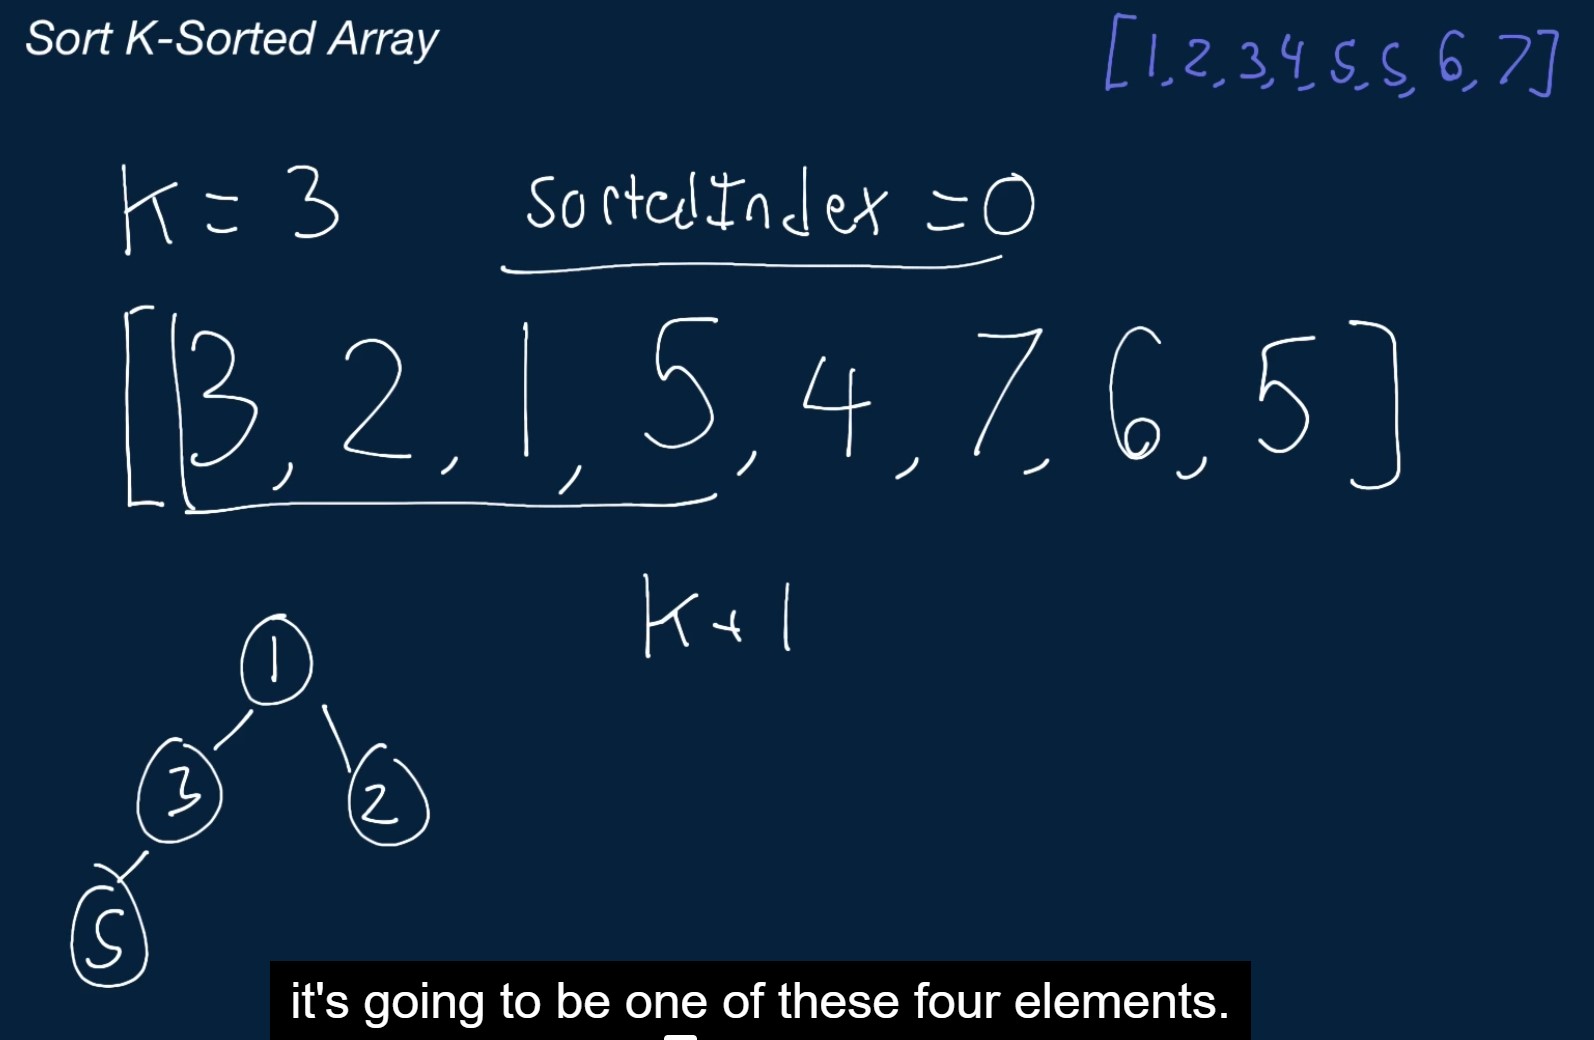 Sort K-Sorted Array
[1,2,3,4,5,5,6,7]
K = 3
sortedIndex = 0
[3, 2, 1, 5, 4, 7, 6, 5]
K+1
1
3
2
5
it's going to be one of these four elements.